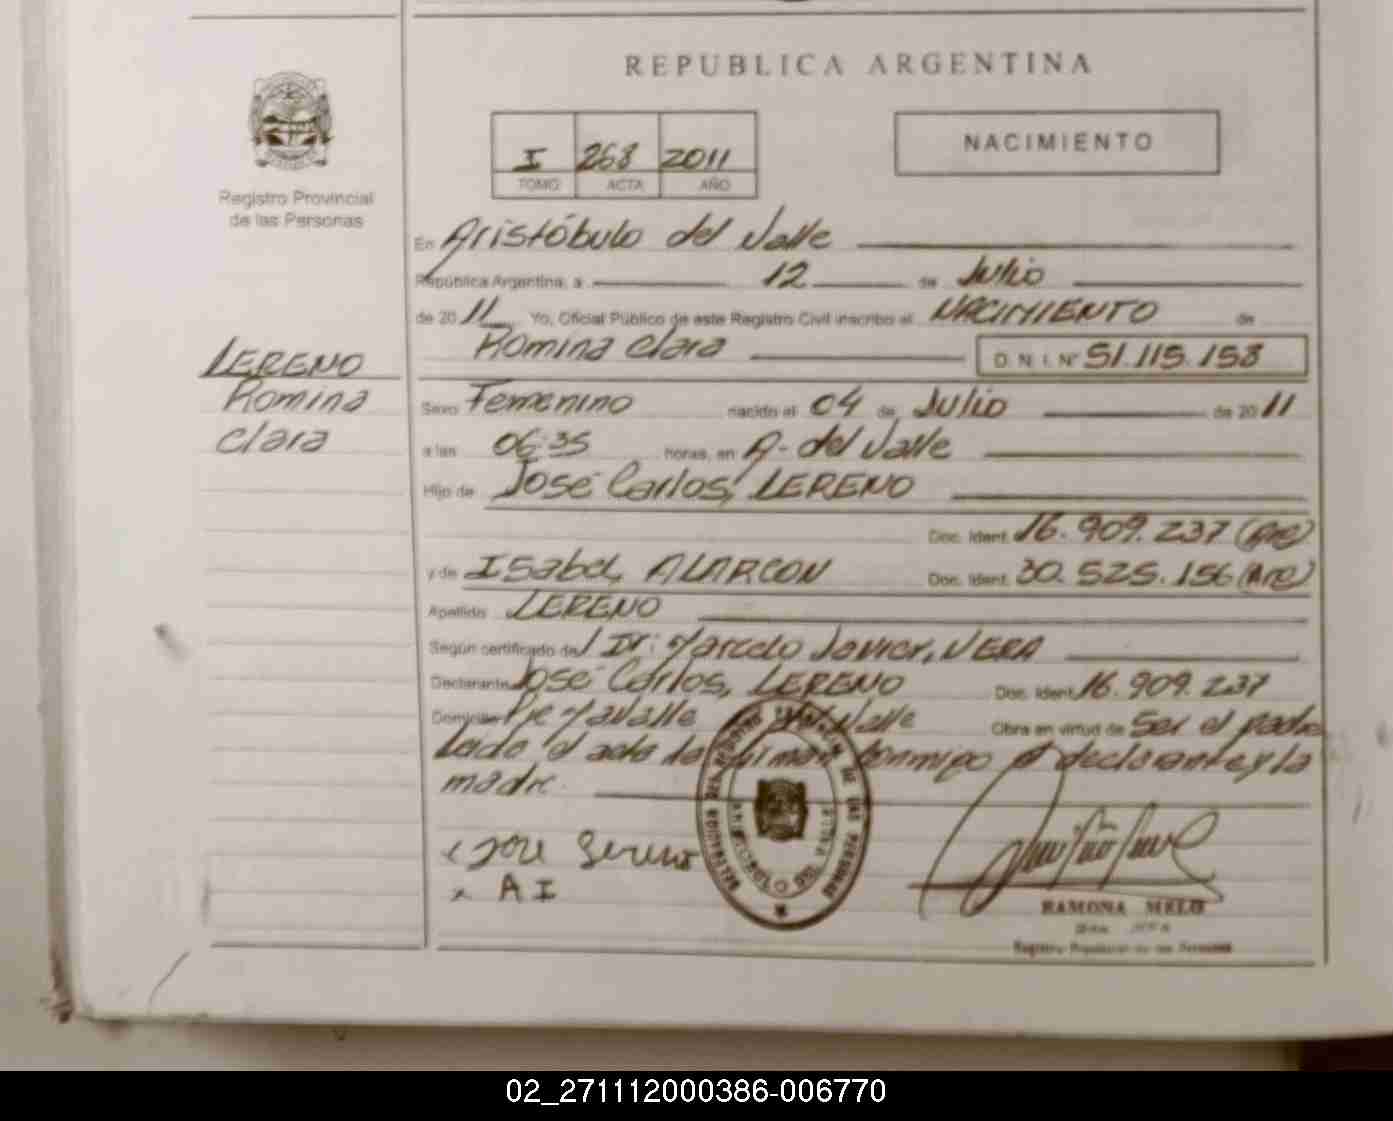 REPUBLICA ARGENTINA
NACIMIENTO
I 268 2011
TOMO ACTA AÑO
Registro Provincial
de las Personas
En Aristóbulo del Valle
República Argentina, a 12 de Julio
de 2011 Yo, Oficial Público de este Registro Civil inscribo el NACIMIENTO de
Romina Clara D. N. I. Nº 51.115.158
LERENO
Romina
Clara
Sexo Femenino nacido el 04 de Julio de 2011
a las 06:35 horas, en A. del Valle
Hijo de José Carlos, LERENO
Doc. Ident. 16.909.237 (Arg)
y de Isabel, ALARCON Doc. Ident. 30.525.156 (Arg)
Apellido LERENO
Según certificado del Dr: Marcelo Javier, VERA
Declarante José Carlos, LERENO Doc. Ident. 16.909.237
Domicilio Valle Obra en virtud de Ser el padre
Leído el acta la firman conmigo el declarante y la
madre.
x José Lereno
x A I
RAMONA MELO
Registro Provincial de las Personas
02_271112000386-006770